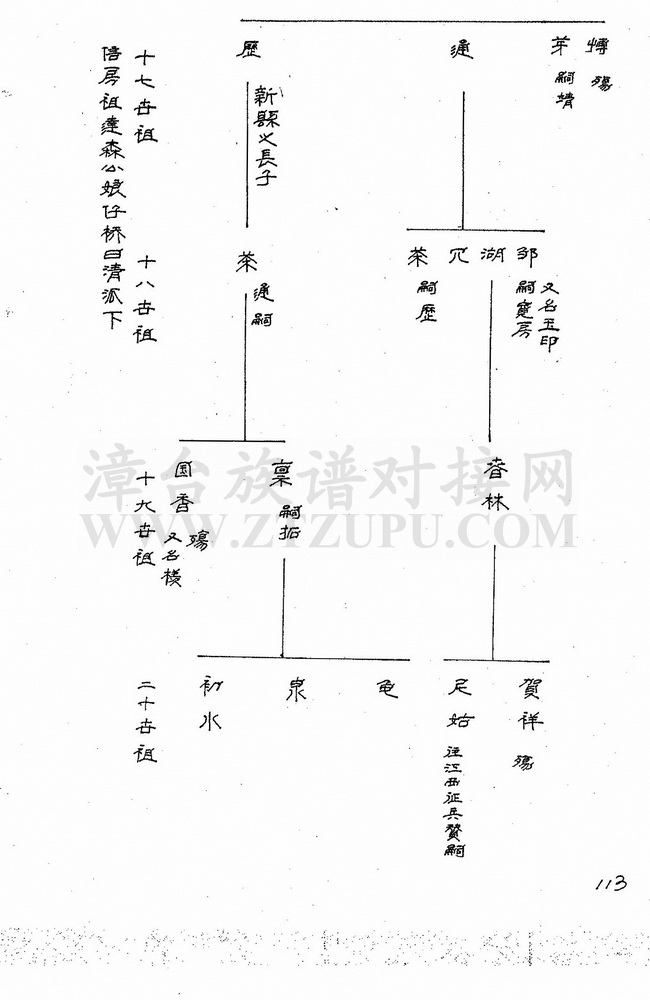 十七世祖
十八世祖
十九世祖
二十世祖
信房祖達森公娘仔桥曰清派下
慱 殤
芽 嗣靖
通
歷
新縣之長子
邹 嗣寬房
又名玉印
湖
茶 嗣歷
茶 通嗣
春林
稟 嗣拓
国香 殤
又名様
賀祥 殤
尼姑 往江西征兵贅嗣
龟
泉
初水
漳台族谱对接网
WWW.ZTZUPU.COM
113